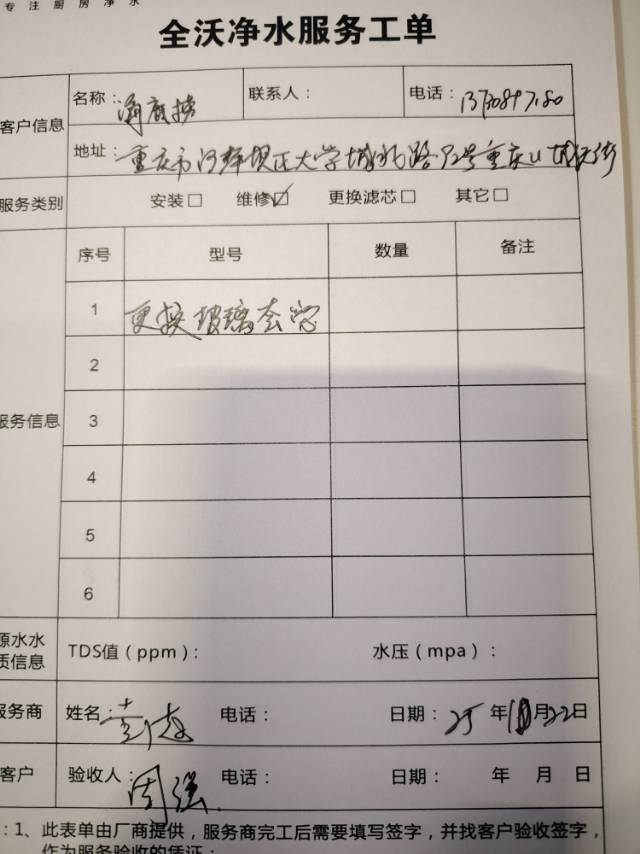 专注厨房净水
全沃净水服务工单
客户信息 名称： 联系人： 电话：
地址：重庆市 大学城 路 号重庆
服务类别 安装□ 维修☑ 更换滤芯□ 其它□
序号 型号 数量 备注
1 更换玻璃套管
2
服务信息 3
4
5
6
源水水
质信息 TDS值（ppm）： 水压（mpa）：
服务商 姓名： 电话： 日期：25年10月22日
客户 验收人：周强 电话： 日期： 年 月 日
：1、此表单由厂商提供，服务商完工后需要填写签字，并找客户验收签字，
作为服务验收的凭证；